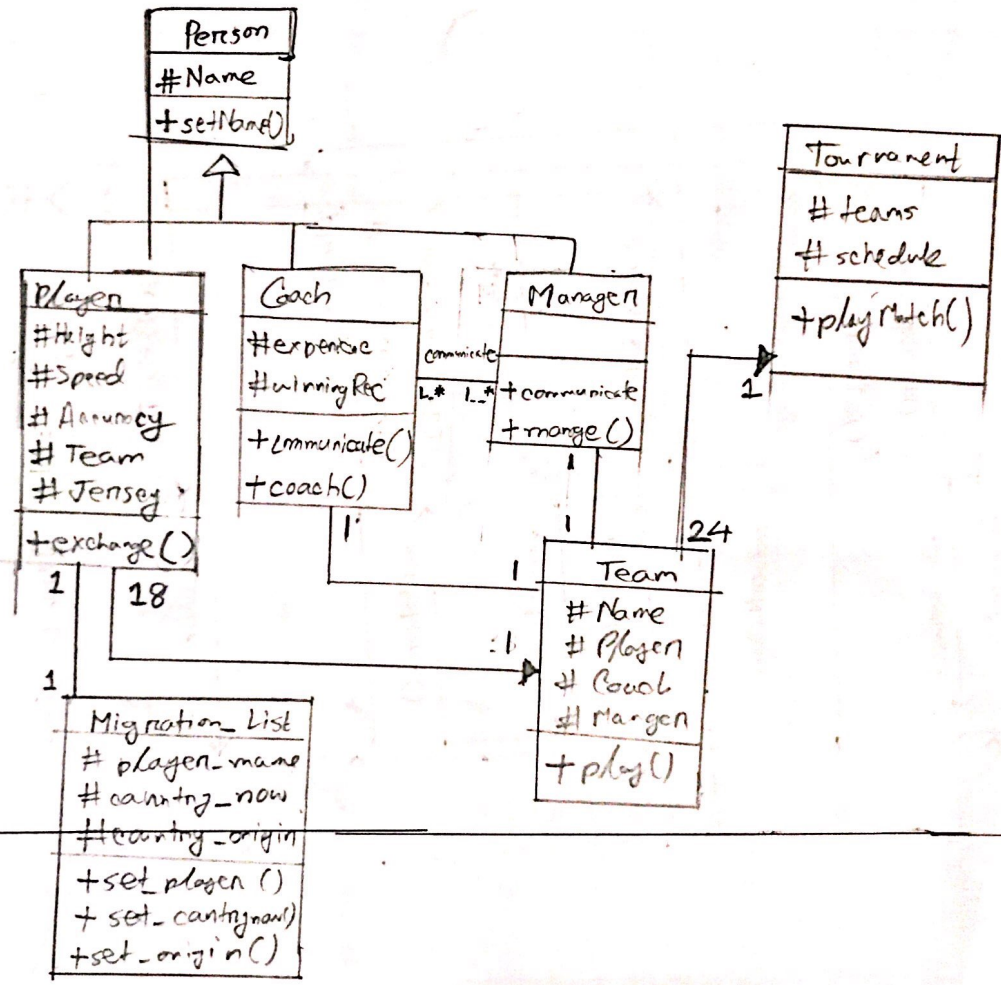 Person
#Name
+setName()
Tournament
# teams
# schedule
+playMatch()
Player
#Height
#Speed
# Accuracy
# Team
# Jersey
+exchange()
1
18
Coach
#winningRec
+communicate()
+coach()
1
communicate
1..*
1..*
Manager
+communicate
+mange()
1
1
1
24
1
Team
# Name
# Player
# Coach
+play()
:1
1
Migration_List
# player_name
# country_now
#country_origin
+set_player ()
+ set_cantrynow()
+set_origin()